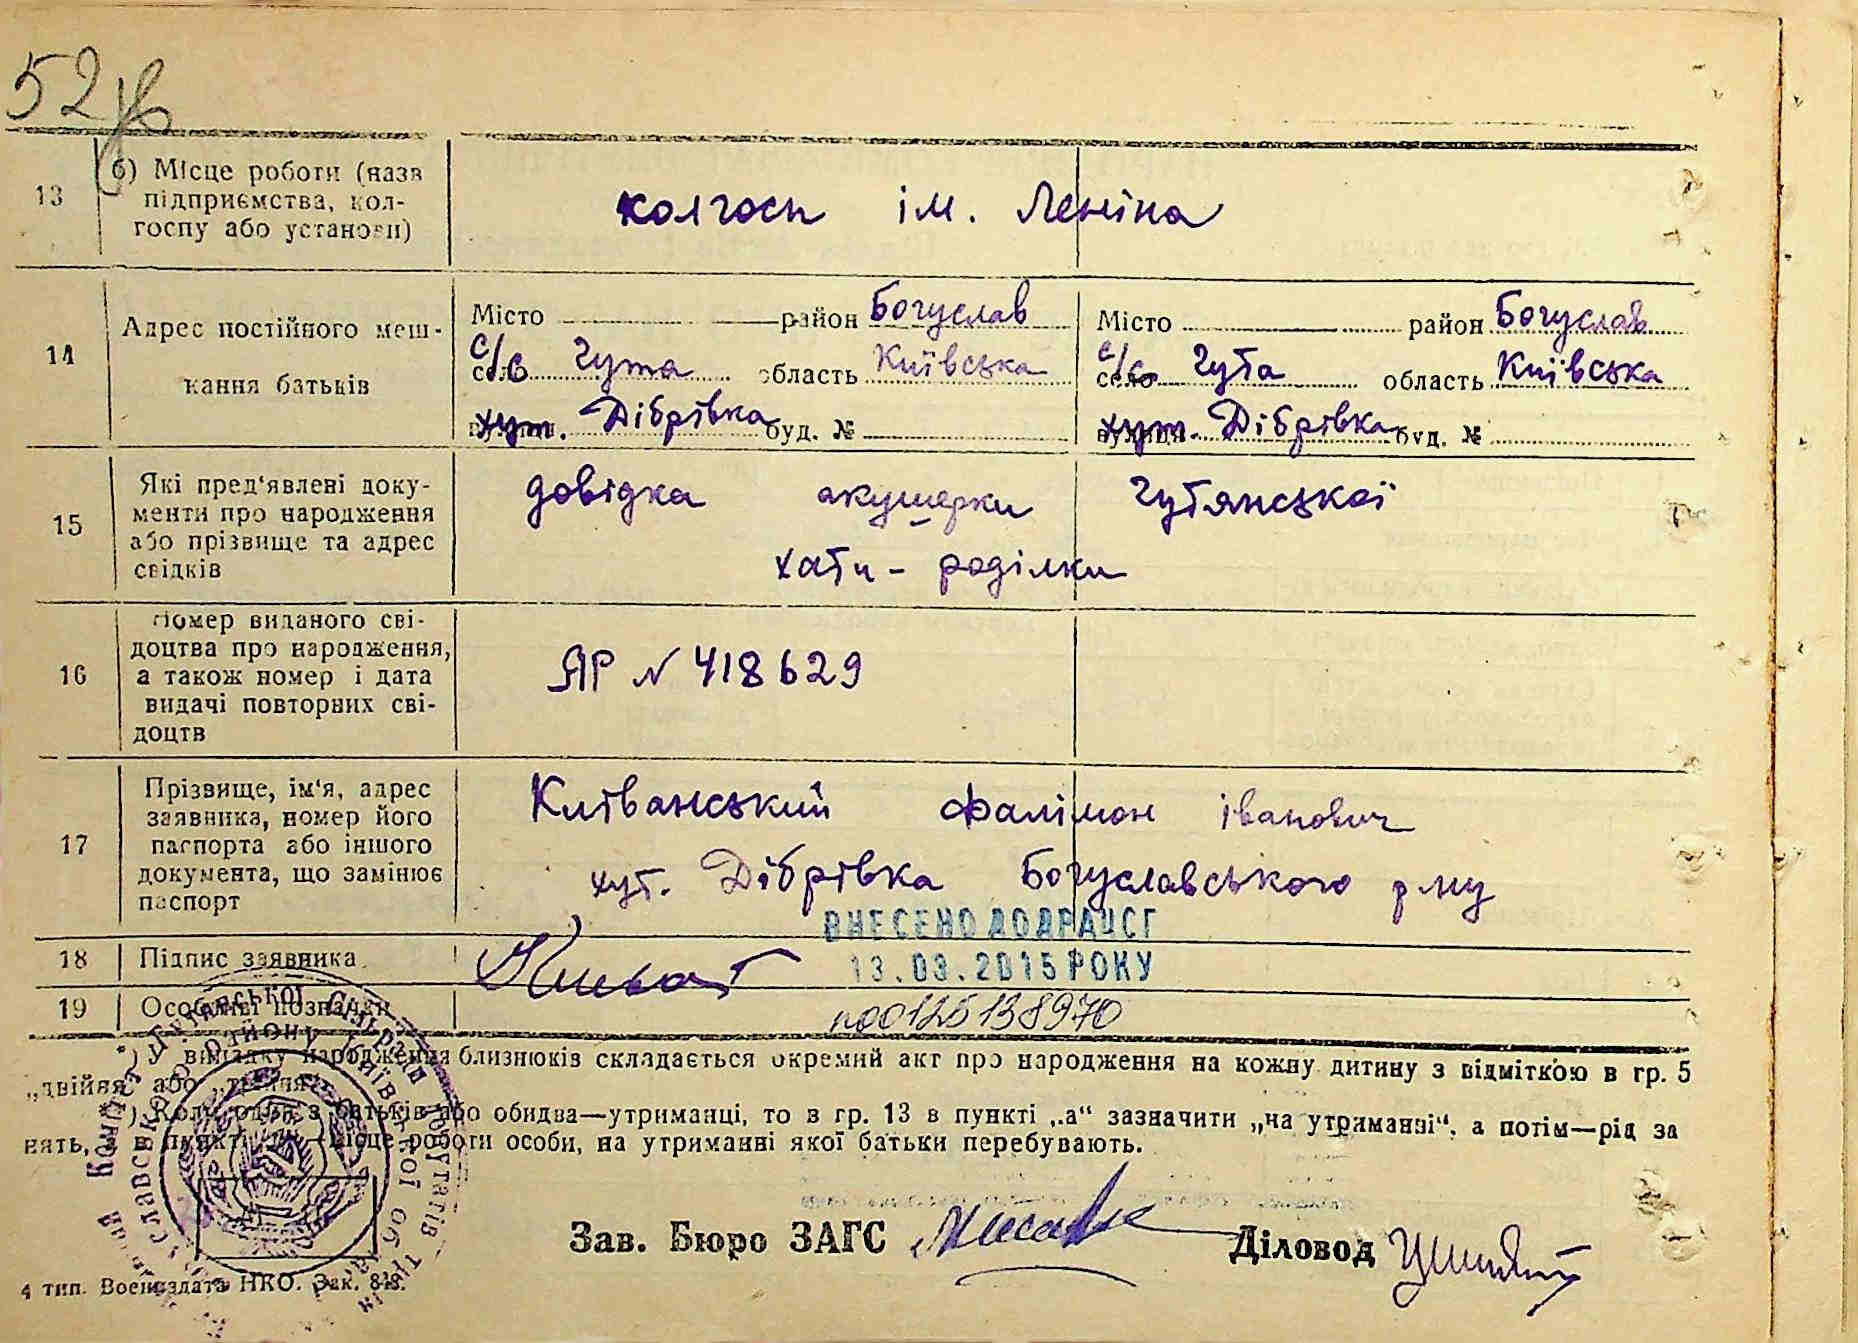 52
13 б) Місце роботи (назв
підприємства, кол-
госпу або установи)
колгосп ім. Леніна
14 Адрес постійного меш-
кання батьків
Місто район Богуслав
с/с село Гута область Київська
хут. Дібрівка буд. №
Місто район Богуслав
с/с село Гута область Київська
хут. вулиця Дібрівка буд. №
15 Які пред'явлені доку-
менти про народження
або прізвище та адрес
свідків
довідка акушерки Гутянської
хати - роділки
16 Номер виданого сві-
доцтва про народження,
а також номер і дата
видачі повторних сві-
доцтв
ЯР № 418629
17 Прізвище, ім'я, адрес
заявника, номер його
паспорта або іншого
документа, що замінює
паспорт
Фалімон Іванович
хут. Дібрівка Богуславського р-ну
ВНЕСЕНО ДО ДРАЦСГ
13.03.2015 РОКУ
18 Підпис заявника
19 Особливі позначки
00125138970
*) У випадку народження близнюків складається окремий акт про народження на кожну дитину з відміткою в гр. 5
„двійня" або „трійня".
) Коли один з батьків або обидва—утриманці, то в гр. 13 в пункті „а" зазначити „на утриманні", а потім—рід за
нять, в пункті місце роботи особи, на утриманні якої батьки перебувають.
Зав. Бюро ЗАГС Діловод
4 тип. Воениздата НКО. Зак. 818.